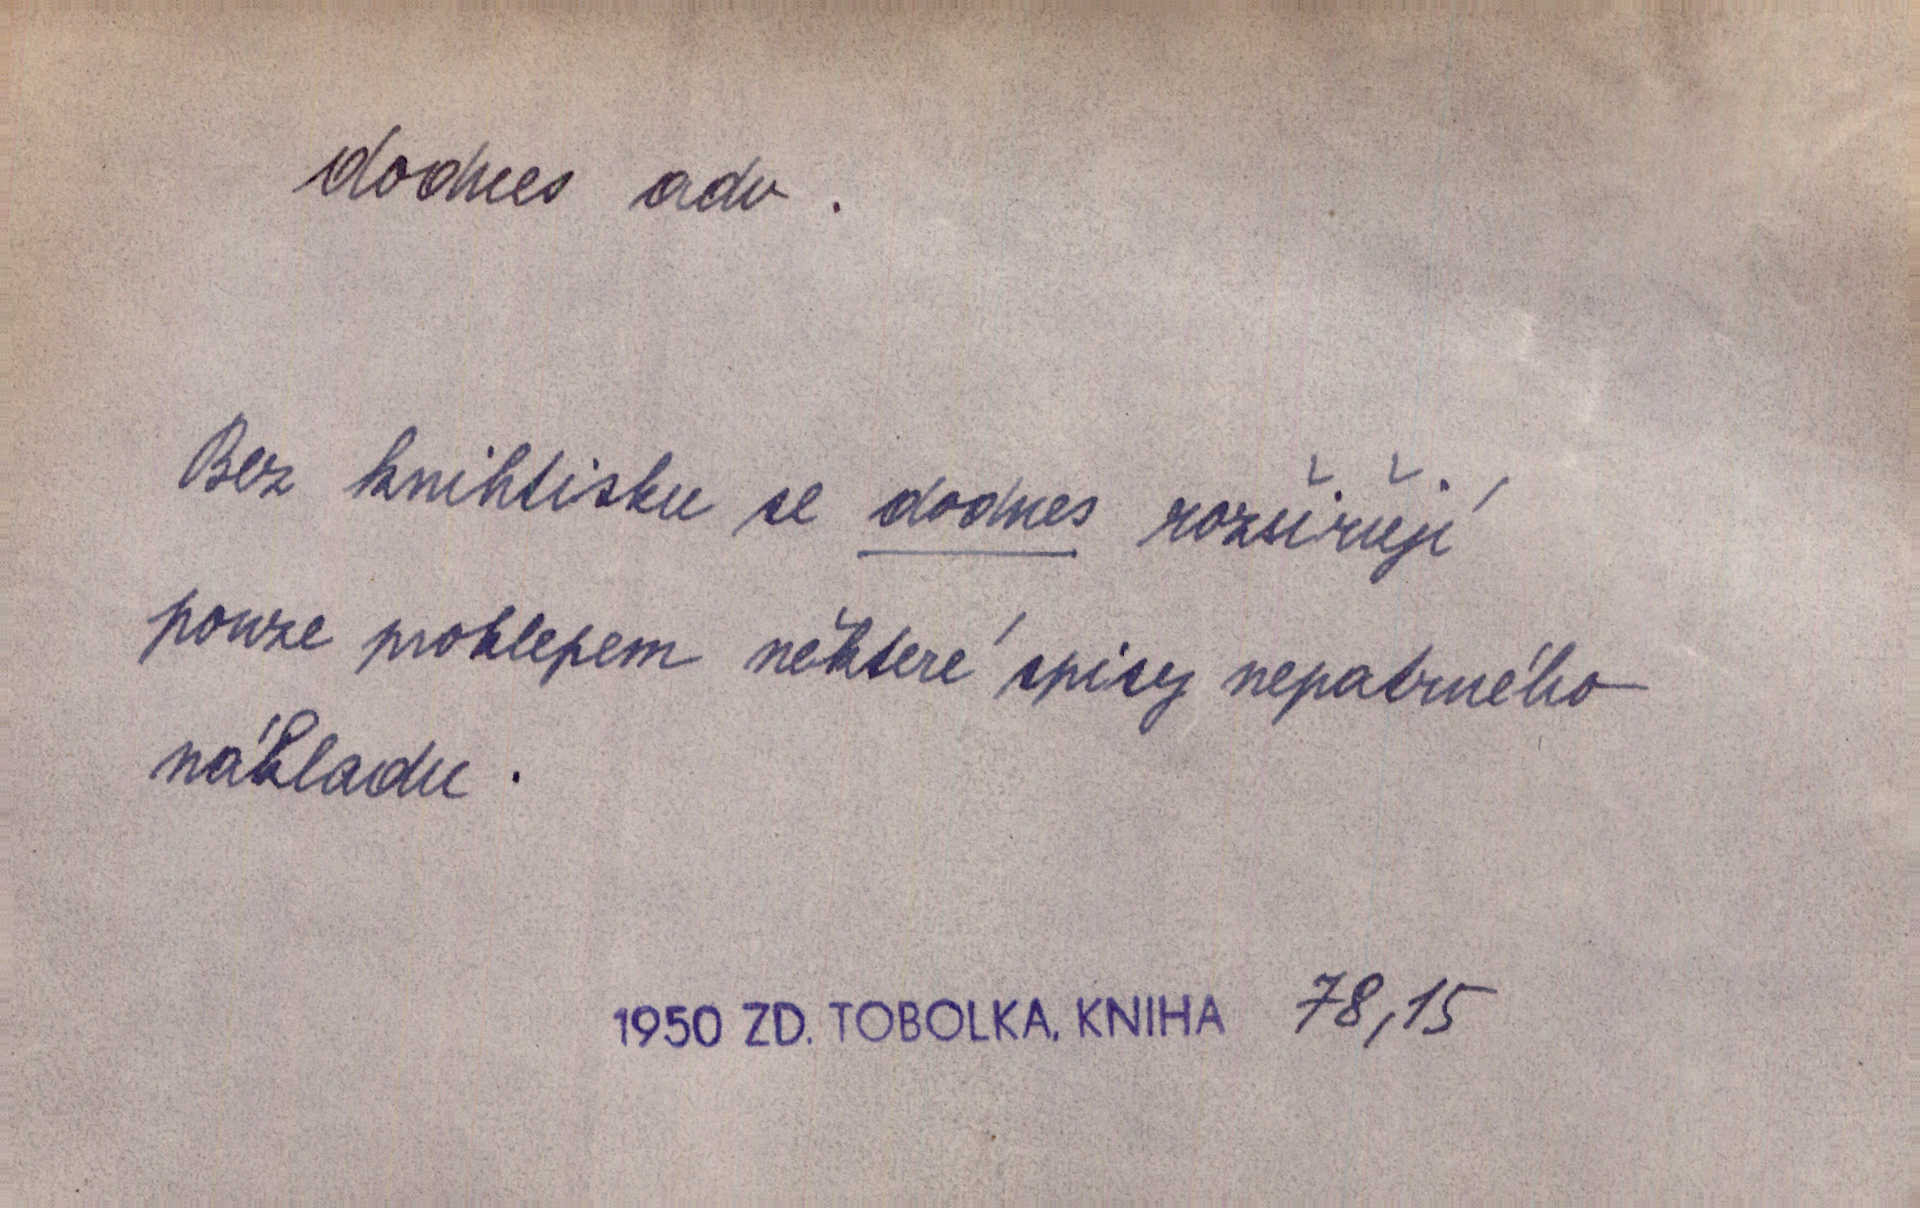 dodnes adv.
Bez knihtisku se dodnes rozšiřují
pouze proklepem některé spisy nepatrného
nákladu.
1950 ZD. TOBOLKA, KNIHA 78,15